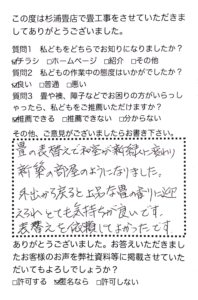 この度は杉浦畳店で畳工事をさせていただきま
してありがとうございました。
質問1 私どもをどちらでお知りになりましたか?
☑チラシ □ホームページ □紹介 □その他
質問2 私どもの作業中の態度はいかがでしたか?
☑良い □普通 □悪い
質問3 畳や襖、障子などでお困りの方がいらっし
ゃったら、私どもをご推薦いただけますか?
☑推薦できる □推薦できない □分からない
その他、ご意見がございましたらお書き下さい。
畳の表替えで和室が新緑に変わり
新築の部屋のようになりました。
外出から戻ると上品な畳の香りに迎
えられとても気持ちが良いです。
表替えを依頼してよかったです
ありがとうございました。お答えいただきまし
たお客様のお声を弊社資料等に掲載させていた
だいてもよろしでしょうか?
□許可する ☑匿名なら □許可しない